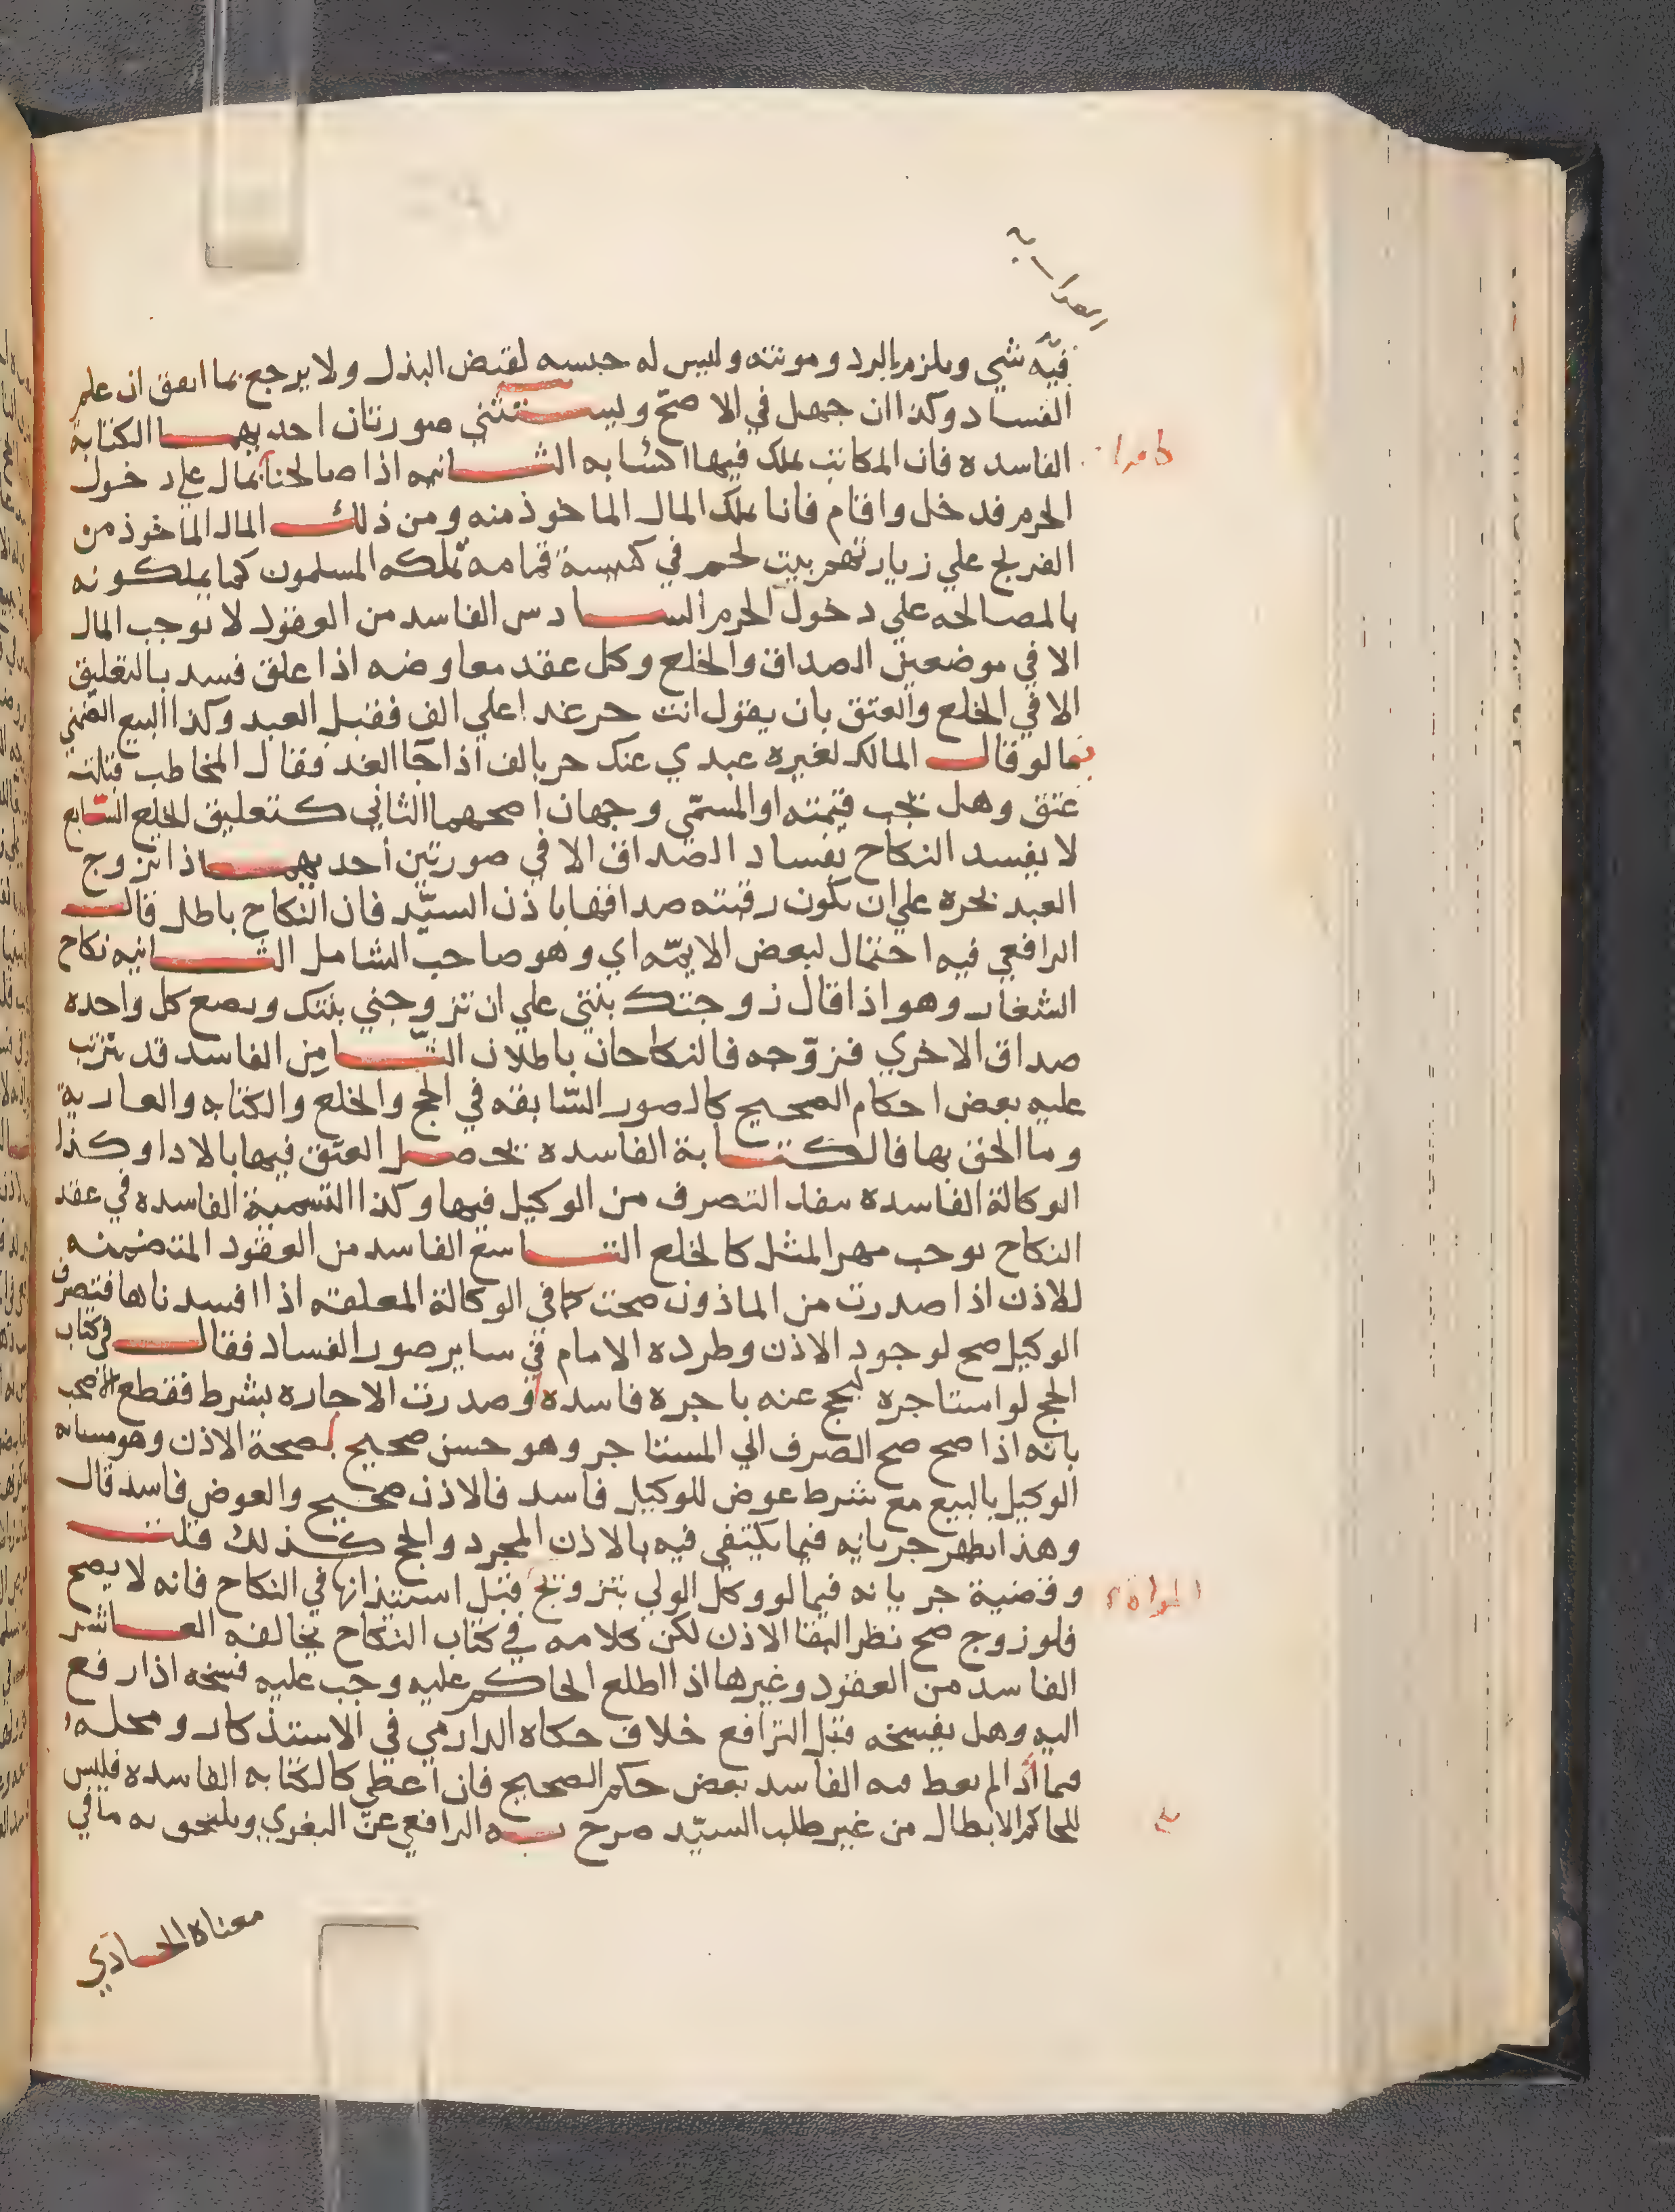 فيه شي ويلزم بالرد ومونته وليس له حبسه لقبض البذل ولا يرجع بما انفق ان علم
الفساد وكذا ان جهل في الاصح ويستثني صورتان احديهما الكتابة
الفاسده فان المكاتب يملك فيها اكسابه الثانيه اذا صالحنا بمال علي دخول
الحرم فدخل واقام فانا نملك المال الماخوذ منه ومن ذلك المال الماخوذ من
الفرنج علي زيارتهم بيت لحم في كنيسة قمامه تملكه المسلمون كما يملكونه
بالمصالحه علي دخول الحرم السادس الفاسد من العقود لا يوجب المال
الا في موضعين الصداق والخلع وكل عقد معاوضه اذا علق فسد بالتعليق
الا في الخلع والعتق بان يقول انت حر غدا علي الف فقبل العبد وكذا البيع الضمني
فيما لو قال المالك لغيره عبدي عنك حر بالف اذا جا الغد فقال المخاطب قبلت
عتق وهل تجب قيمته او المسمّي وجهان اصحهما الثاني كتعليق الخلع السّابع
لا يفسد النكاح بفساد الصداق الا في صورتين احديهما اذا تزوج
العبد بحره علي ان تكون رقبته صداقها باذن السيّد فان النكاح باطل قال
الرافعي فيه احتمال لبعض الايمّه اي وهو صاحب الشامل الثانيه نكاح
الشغار وهو اذا قال زوجتك بنتي علي ان تزوجني بنتك وبضع كل واحده
صداق الاخري فزوّجه فالنكاحان باطلان الثّامن الفاسد قد يترتب
عليه بعض احكام الصحيح كالصور السّابقه في الحج والخلع والكتابه والعارية
وما الحق بها فالكتابة الفاسده يحصل العتق فيها بالادا وكذا
الوكالة الفاسده يفاد التصرف من الوكيل فيها وكذا التسمية الفاسده في عقد
النكاح يوجب مهر المثل كالخلع التاسع الفاسد من العقود المتضمنه
للاذن اذا صدرت من الماذون صحت كما في الوكالة المعلقه اذا افسدناها فتصرف
الوكيل صح لوجود الاذن وطرده الامام في ساير صور الفساد فقال في كتاب
الحج لو استاجره ليحج عنه باجره فاسده او صدرت الاجاره بشرط فقطع الاصحاب
بانه اذا صح صح الصرف الي المستاجر وهو حسن صحيح لصحة الاذن وهو مشابه
الوكيل بالبيع مع شرط عوض للوكيل فاسد فالاذن صحيح والعوض فاسد قال
وهذا يظهر جريانه فيما يكتفي فيه بالاذن المجرد والحج كذلك قلت
وقضية جريانه فيما لو وكل الولي بتزويج قبل استيذانها في النكاح فانه لا يصح
فلو زوج صح نظرا لبقا الاذن لكن كلامه في كتاب النكاح يخالفه العاشر
الفاسد من العقود وغيرها اذا اطلع الحاكم عليه وجب عليه فسخه اذا رفع
اليه وهل يفسخه قبل الترافع خلاف حكاه الدارمي في الاستذكار ومحله
فيما اذا لم يعط فيه الفاسد بعض حكم الصحيح فان اعطي كالكتابه الفاسده فليس
للحاكم الابطال من غير طلب السيّد صرح به الرافعي عن البغوي ويلتحق به ما في
معناه الحادي